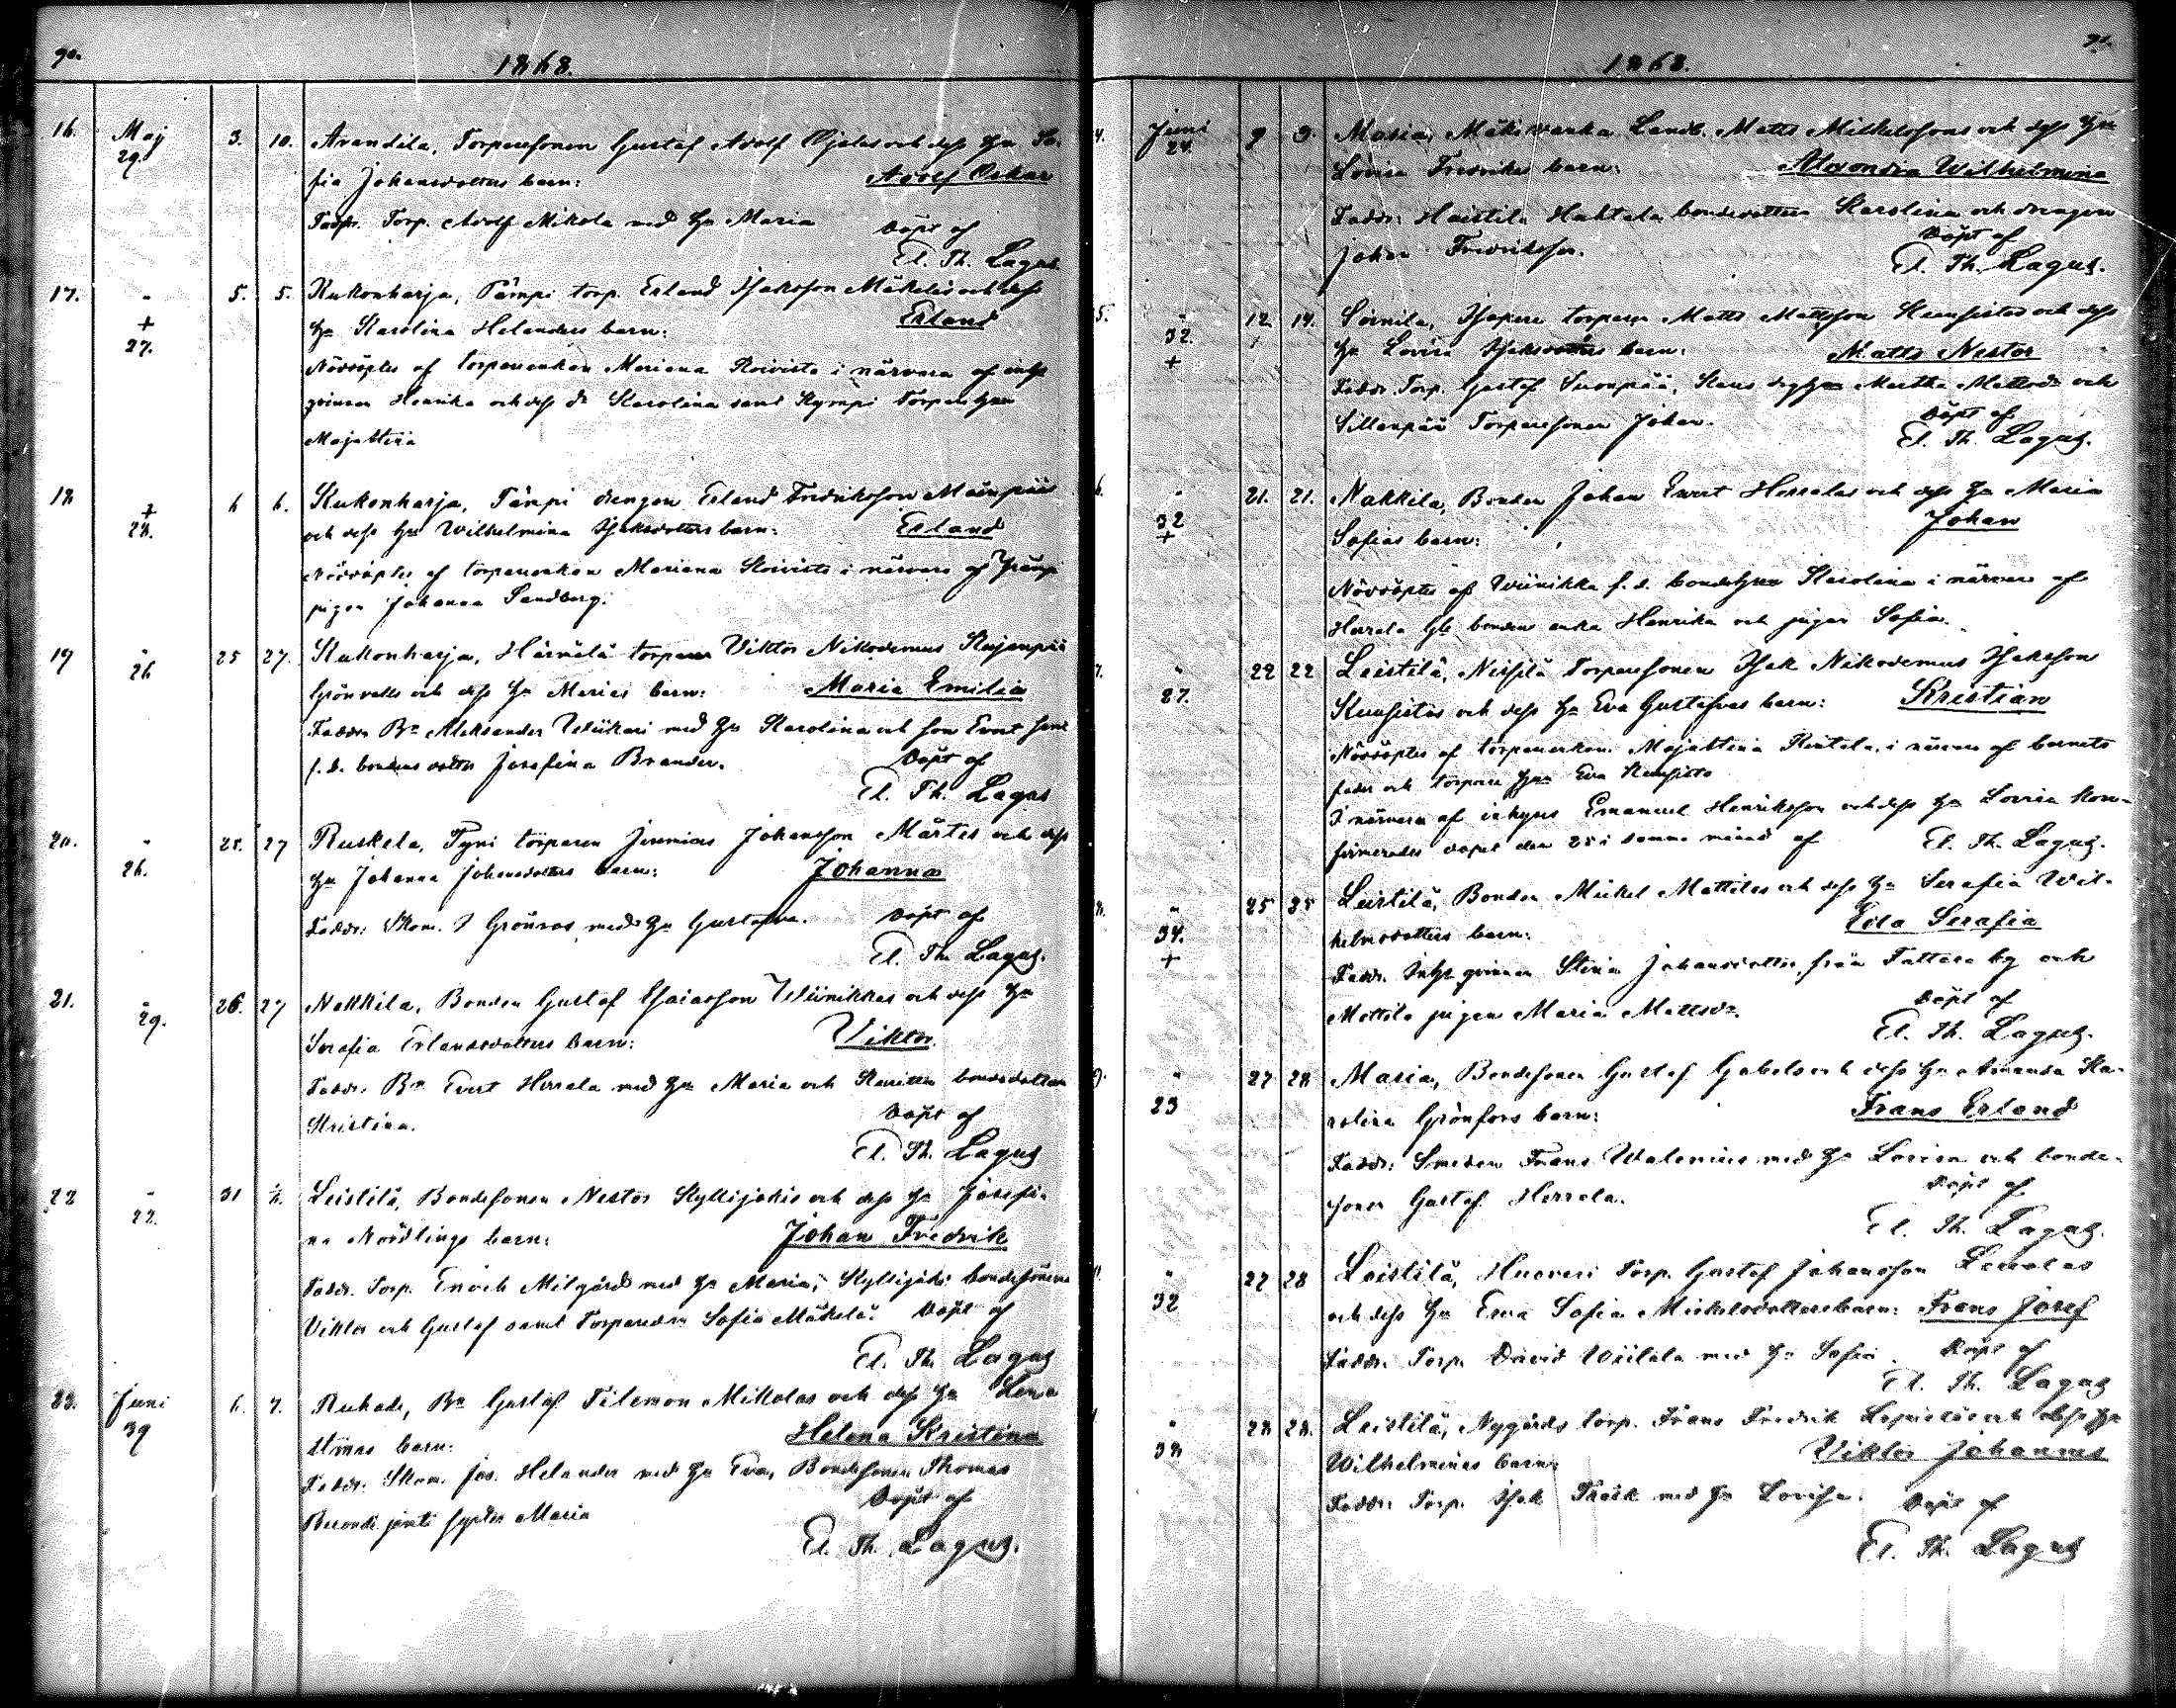 90.
1868.
16. Maj 29. 3. 10. Arandila, Torparesonen Gustaf Adolf Ojalas och dess Hu So-
fia Johansdotters barn: Adolf Oskar
Faddr. Torp. Adolf Mikola med Hu Maria Döpt af
El. Th. Lagus
17. " + 27. 5. 5. Kukonharja, Pämpi torp. Erland Isaksson Mäkeläs och dess
Hu Karolina Helanders barn: Erland
Nöddöptes af torpareenkan Mariana Koivisto i närvaro af inhys
qvinnan Henrika och dess dr Karolina samt Kympi Torpareh
Majastina
18 + 28. 6 6. Kukonharja, Pämpi drengen Erland Fredriksson
och dess Hu Wilhelmina Isaksdotters barn: Erland
Nöddöptes af torpareenkan Mariana Koivisto i närvaro af Pämpi
pigan Johanna Sandberg.
19 " 26 25 27. Kukonharja, Härvälä torparen Viktor Nikodemus Kujanpää
Grönvalls och dess Hu Marias barn: Maria Emilia
Faddr Bn Aleksander Wiikari med Hu Karolina och son Evert samt
f.d. bondens dotter Josefina Brander. Döpt af
El. Th. Lagus
20. " 26. 25. 27 Ruskela, Tyni torparen Jeremias Johansson Märtes och dess
Hu Johanna Johansdotters barn: Johanna
Faddr: Skom. J Grönroos med Hu Gustafva. Döpt af
El. Th. Lagus.
21. " 29. 26. 27 Nakkila, Bonden Gustaf Esaiasson Wiinikkas och dess Hu
Serafia Erlandsdotters barn: Viktor.
Faddr. Bn Evert Herrala med Hu Maria och bondedottren
Kristina. Döpt af
El. Th. Lagus
22 " 22. 31 Leistilä, Bondesonen Nestor Kyllijokis och dess Hu Josefi-
na Nordlings barn: Johan Fredrik
Faddr. Torp. Enoch Milgård med Hu Maria, Kyllijoki bondesönerne
Viktor och Gustaf samt Torparedrn Sofia Mäkelä. Döpt af
El. Th. Lagus
23. Juni 39 6. 7. Ruhade, Bn Gustaf Filemon Mikolas och dess Hu Lena
Stinas barn: Helena Kristina
Faddr: Skom. Jos. Helander med Hu Eva, Bondesonen Thomas
syster Maria Döpt af
El. Th. Lagus.
91.
1868.
4. Juni 24. 9 9. Masia, Mäkiwarka Landb. Matts Mickelssons och dess Hu
Lovisa Fredrikas barn: Alexandra Wilhelmina
Faddr: Haistila Huhtala bondedottren Karolina och drengen
Johan Fredriksson. Döpt af
El. Th. Lagus.
5. " 32. + 12. 14. Sornila, torparen Matts Mattsson Kuusistos och dess
Hu Lovisa Isaksdotters barn: Matts Nestor
Faddr. Torp. Gustaf Suonpää, Martha Mattsdr och
Sillanpää Torparesonen Johan. Döpt af
El. Th. Lagus.
6. " 32 + 21. 21. Nakkila, Bonden Johan Evert Herralas och dess Hu Maria
Sofias barn: Johan
Nöddöptes af Wiinikka f.d. bondehustrun Karolina i närvaro af
Herrala bonden enka Henrika och pigan Sofia.
7. " 27. 22 22 Leistilä, Neisilä Torparesonen Isak Nikodemus Isaksson
Kuusistos och dess Hu Eva Gustafvas barn: Kristian
Nöddöptes af torpareenkan Majastina Rintala i närvaro af barnets
fader och torpare Hun Eva Kuusisto
I närvaro af inhyses Emanuel Henriksson och dess Hu Lovisa kon-
firmerades dopet den 25 i samma månad af El. Th. Lagus.
8. " 34. + 25 25 Leistilä, Bonden Mickel Mattilas och dess Hu Serafia Wil-
helmsdotters barn: Eda Serafia
Faddr. Inhys qvinnan Stina Johansdotter från Tattara by och
Mattila pigan Maria Mattsdr. Döpt af
El. Th. Lagus.
9. " 23 27 28 Masia, Bondesonen Gustaf Gabels och dess Hu Amanda Ka-
rolina Grönfors barn: Frans Erland
Faddr: Smeden Frans Walenius med Hu Lovisa och bonde-
sonen Gustaf Herrala. Döpt af
El. Th. Lagus.
" 32 27 28 Leistilä, Huoveri Torp. Gustaf Johansson
och dess Hu Eva Sofia Mickelsdotters barn: Frans Josef
Faddr. Torp. David Wiilala med Hu Sofia Döpt af
El. Th. Lagus
" 38 28 28. Leistilä, Nygårds torp. Frans Fredrik och dess Hu
Wilhelminas barn: Viktor Johannes
Faddr: Torp. Isak Träsk med Hu Lovisa. Döpt af
El. Th. Lagus